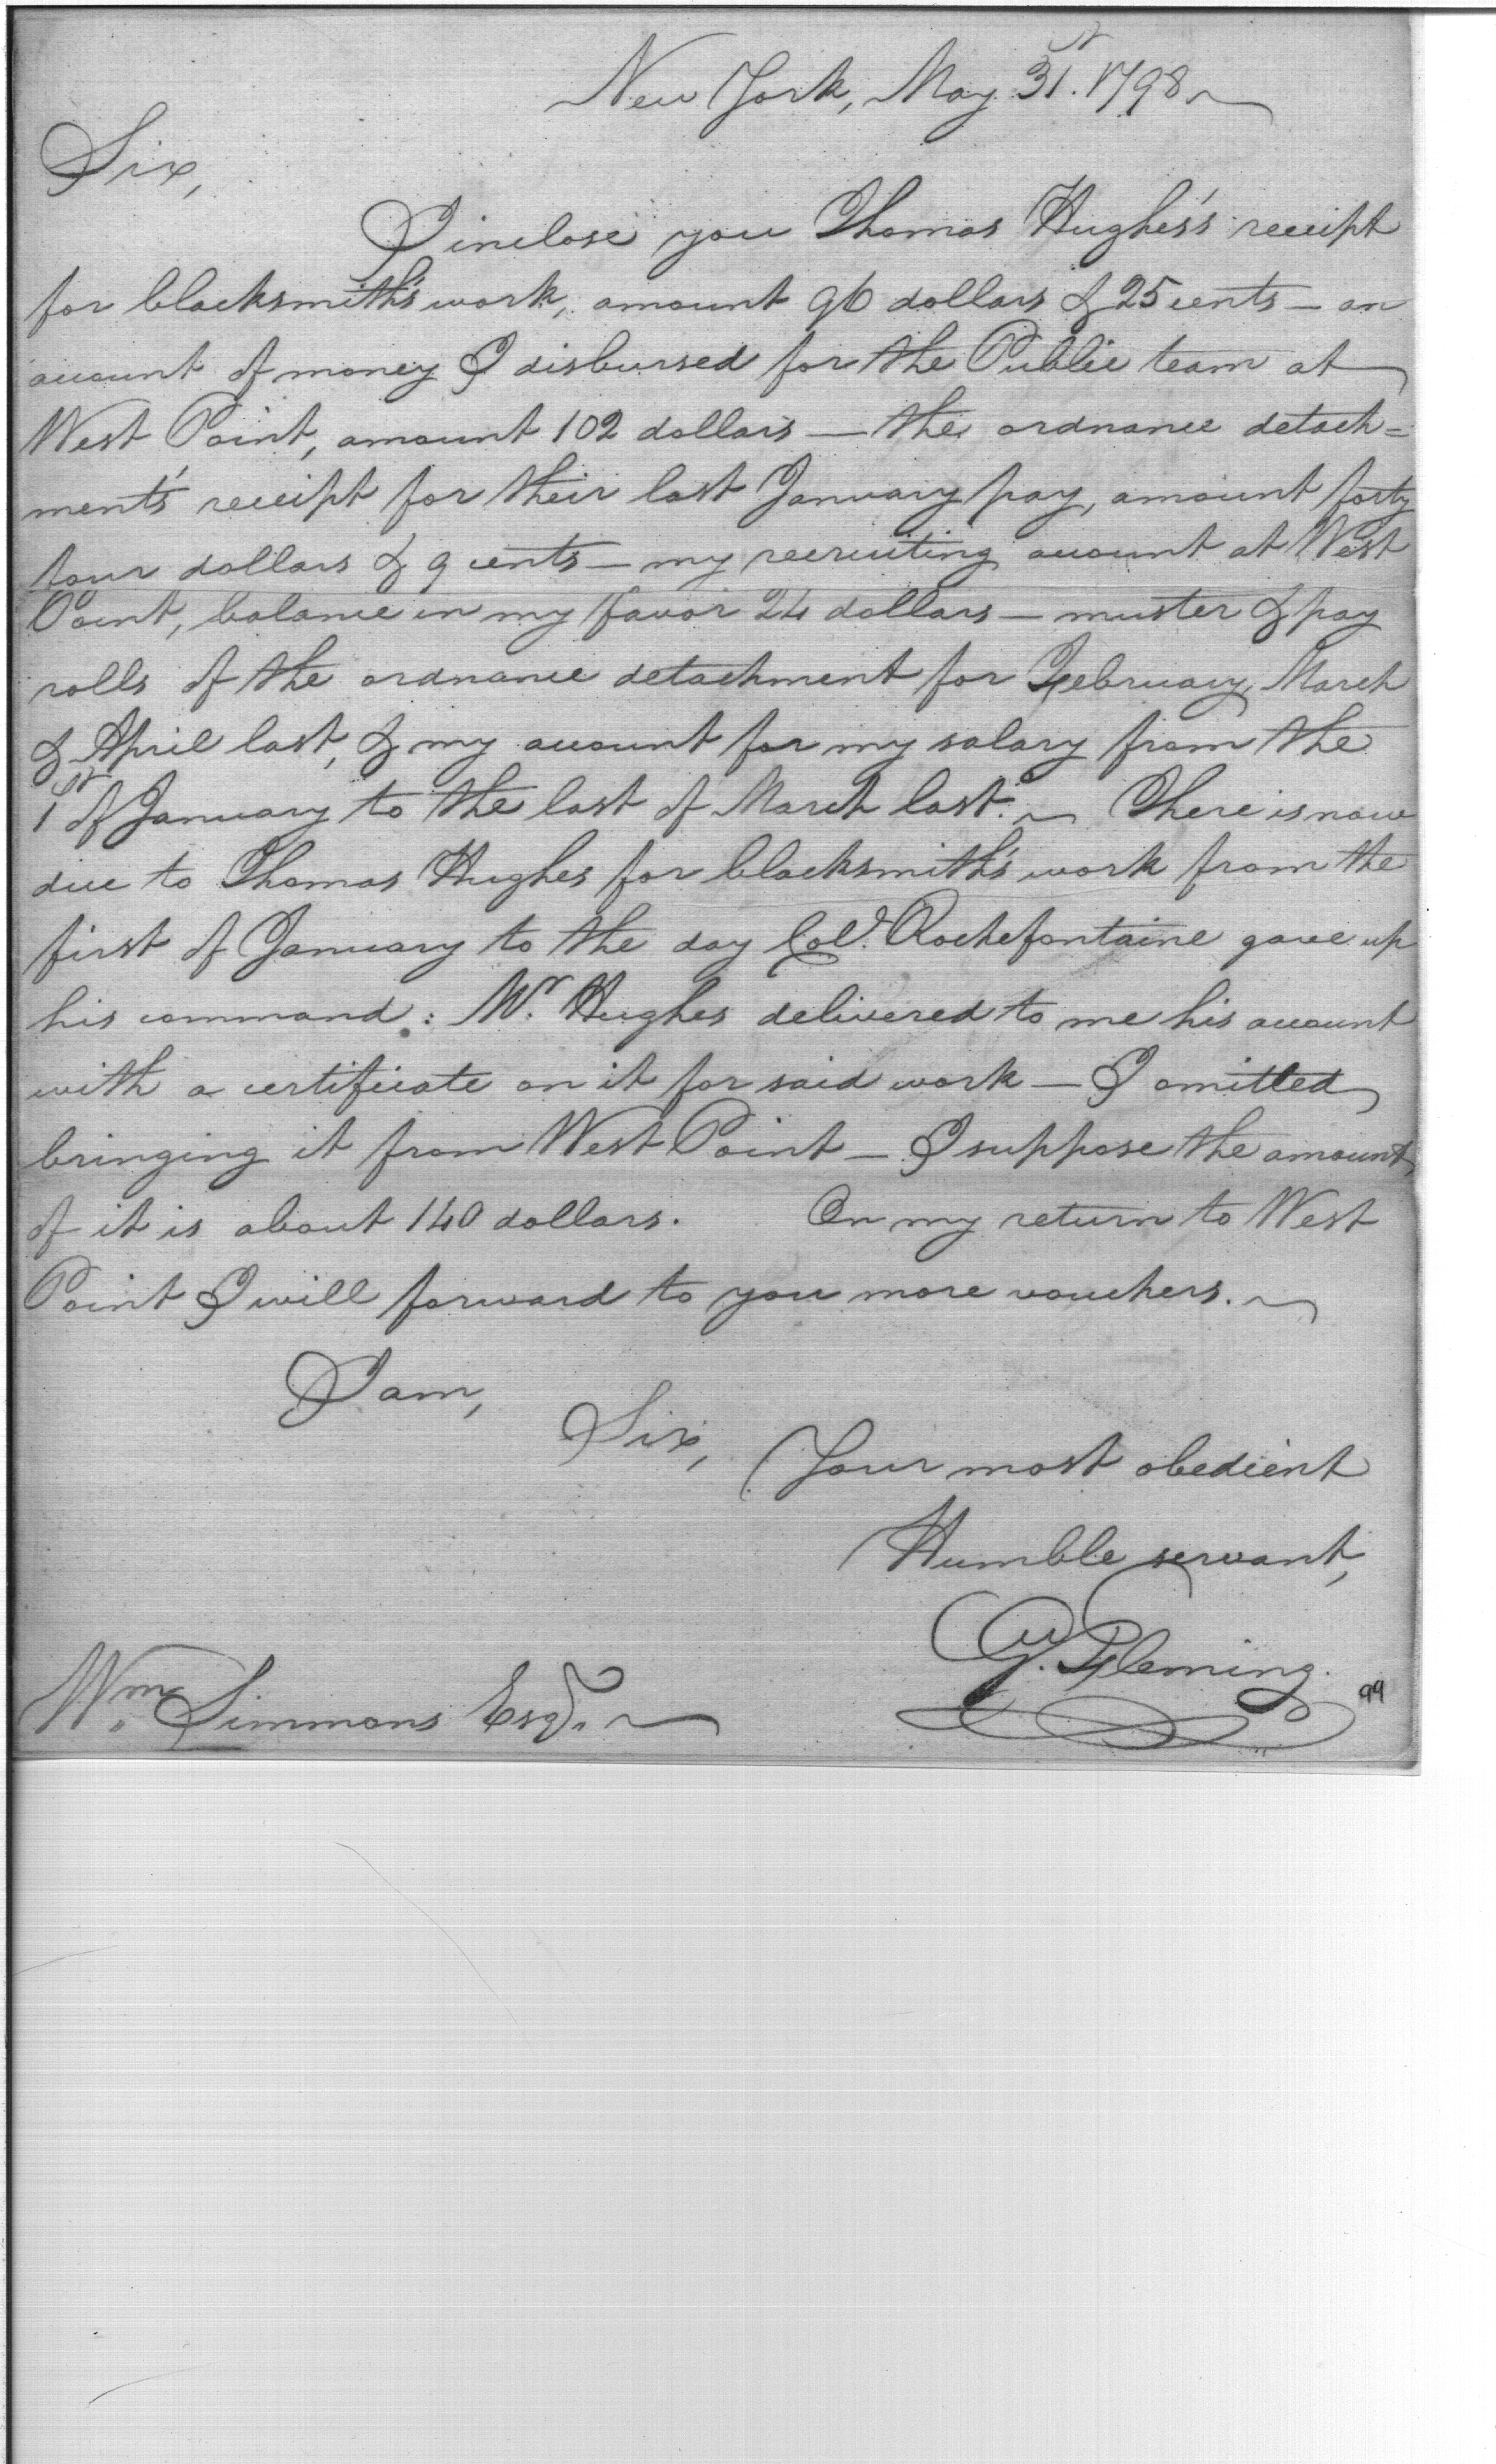 New York, May 31st. 1798
Sir,
I inclose you Thomas Hughes's receipt
for blacksmith's work, amount 96 dollars & 25 cents — an
account of money I disbursed for the Public team at
West Point, amount 102 dollars — the ordnance detach=
ment's receipt for their last January pay, amount forty
four dollars & 9 cents — my recruiting account at West
Point, balance in my favor 24 dollars — muster & pay
rolls of the ordnance detachment for February, March
& April last, & my account for my salary from the
1st of January to the last of March last. There is now
due to Thomas Hughes for blacksmith's work from the
first of January to the day Col. Rochefontaine gave up
his command: Mr. Hughes delivered to me his account
with a certificate on it for said work — I omitted
bringing it from West Point — I suppose the amount
of it is about 140 dollars. On my return to West
Point I will forward to you more vouchers.
I am,
Sir,
Your most obedient
Humble servant,
G. Fleming.
Wm. Simmons Esqr.
99